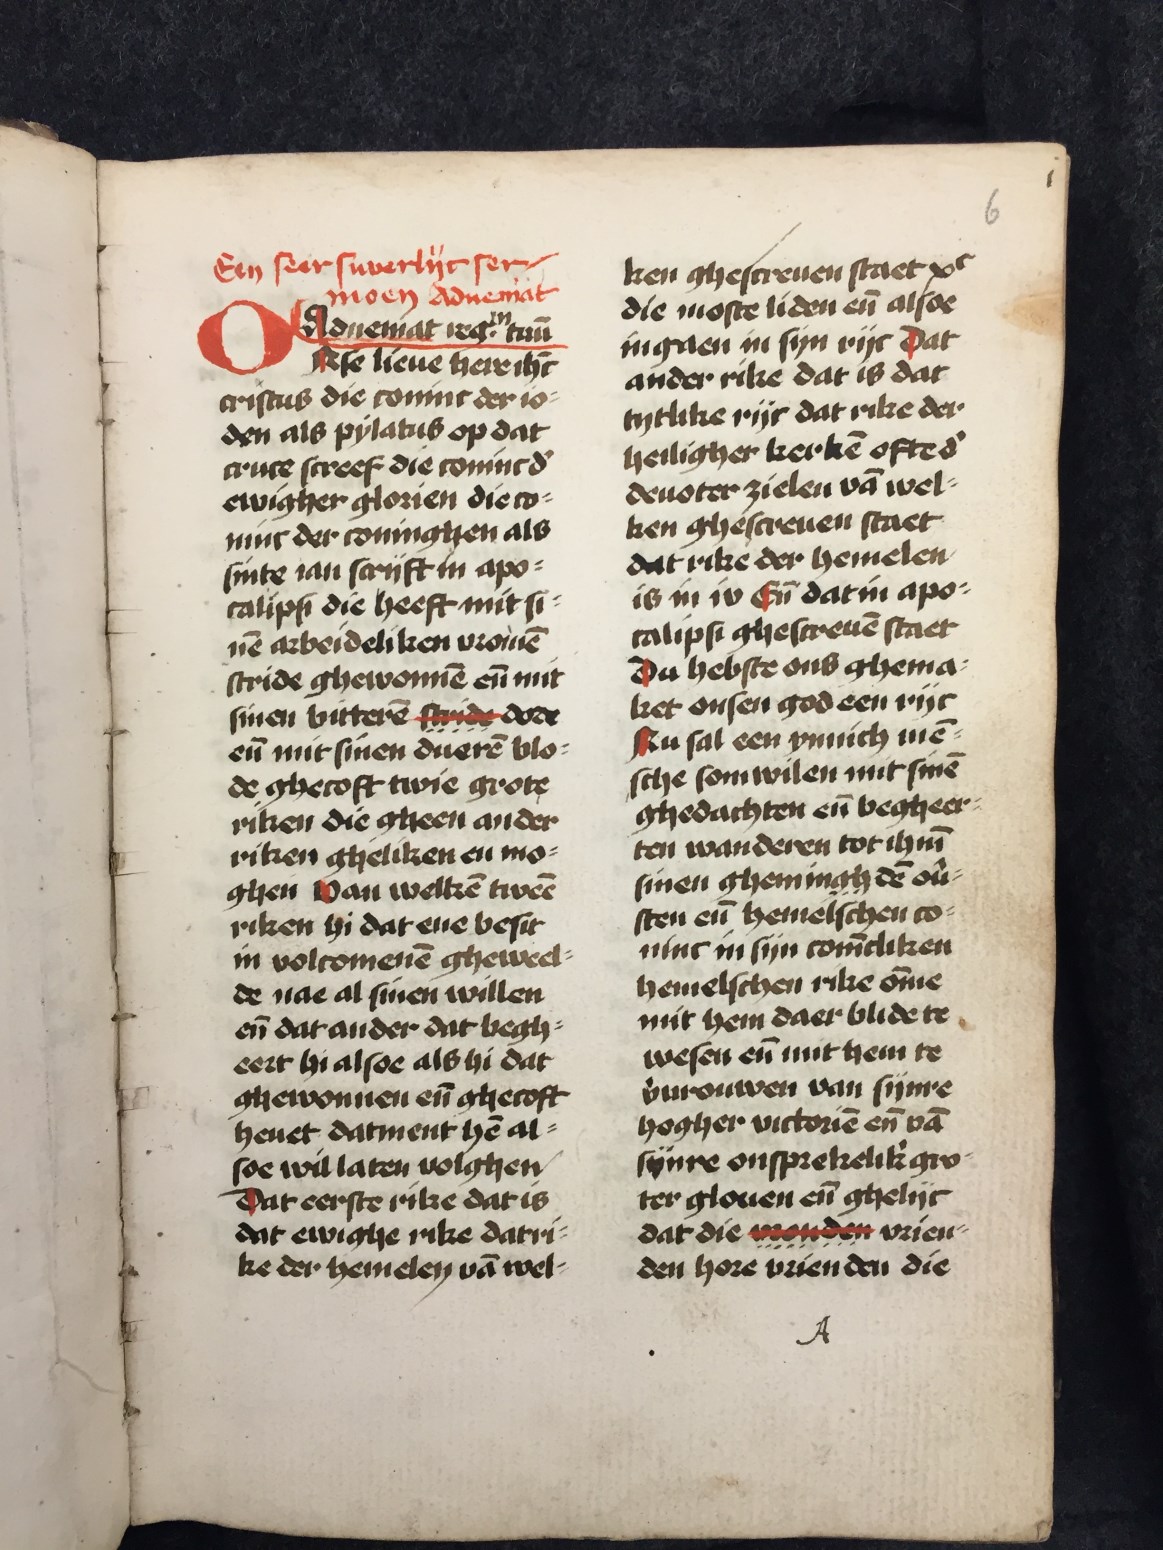 i
6
Een seer suverlijc ser-
moen Adueniat
Adueniat reg.m tuū
ONse lieue here ihc̄
cristus die coninc der io-
den als pylatus op dat
cruce screef die coninc d'
ewigher glorien die co-
ninc der coninghen als
sinte ian scrijft in apo-
calipsi die heeft mit si-
nē arbeideliken vromē
stride ghewonnē eñ mit
sinen bitterē stride dode
eñ mit sinen duerē blo-
de ghecoft twie grote
riken die gheen ander
riken gheliken en mo-
ghen Van welkē tweē
riken hi dat ene besit
in volcomenē gheweel-
de nae al sinen willen
eñ dat ander dat begh-
eert hi alsoe als hi dat
ghewonnen eñ ghecoft
heuet datment hē al-
soe wil laten volghen
Dat eerste rike dat is
dat ewighe rike dat ri-
ke der hemelen vā wel-
ken ghescreuen staet xpc
die moste liden eñ alsoe
ingaen in sijn rijc Dat
ander rike dat is dat
tytlike rijc dat rike der
heiligher kerkē ofte d'
deuoter zielen vā wel-
ken ghescreuen staet
dat rike der hemelen
is in iv Eñ dat in apo-
calipsi ghescreuē staet
Du hebste ons ghema-
ket onsen god een rijc
Nu sal een ynnich mē-
sche somwilen mit sinē
ghedachten eñ begheer-
ten wanderen tot ihm̄
sinen ghemingh dē ou'-
sten eñ hemelschen co-
ninc in sijn conīcliken
hemelschen rike om̄e
mit hem daer blide te
wesen eñ mit hem te
v'urouwen van sijnre
hogher victoriē eñ vā
sijnre onsprekelik' gro-
ter glorien eñ ghelijc
dat die wonden vrien-
den hore vrienden die
A